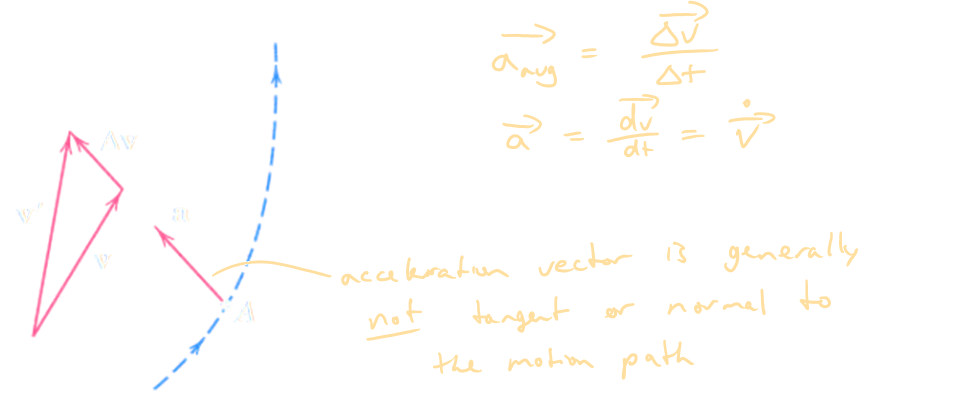 a_avg = Δv / Δt
a = dv / dt = v̇
Δv
v′
v
a
A
acceleration vector is generally
not tangent or normal to
the motion path